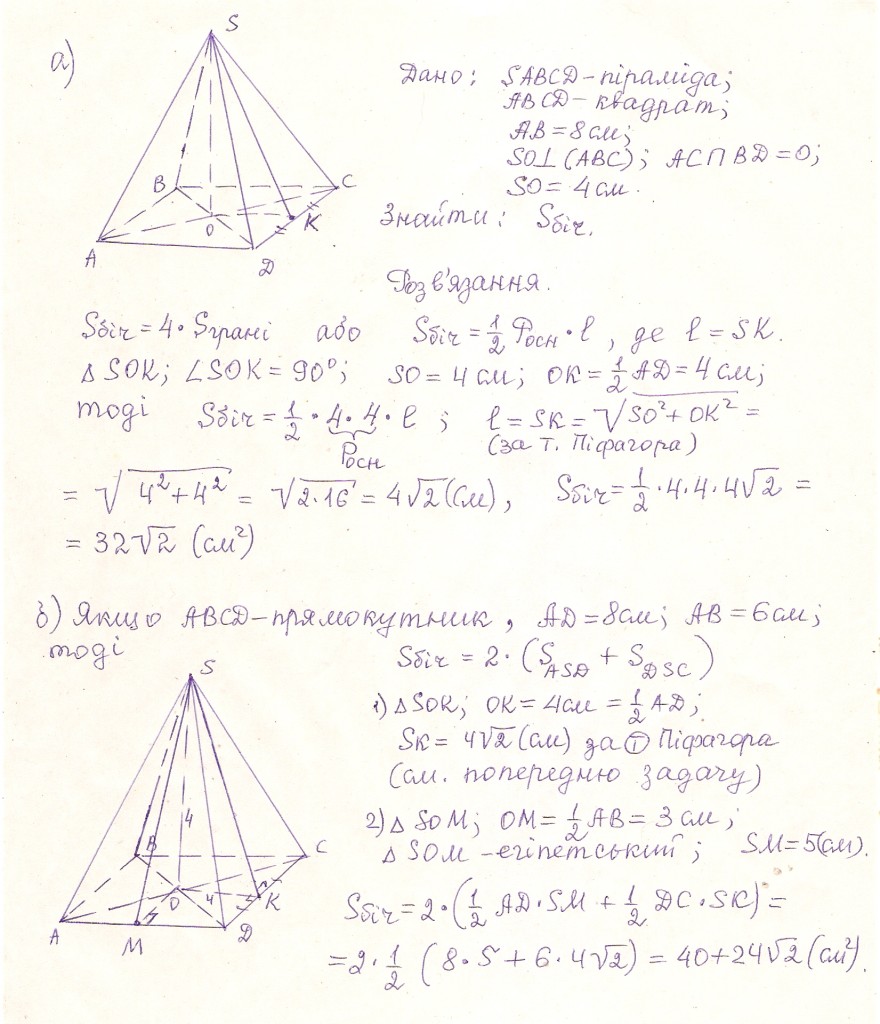 а)
S
B
C
O
K
A
D
Дано: SABCD – піраміда;
ABCD – квадрат;
AB = 8 см;
SO⊥(ABC); AC∩BD = O;
SO = 4 см.
Знайти: Sбіч.
Розв'язання.
Sбіч = 4 · Sграні або Sбіч = 1/2 Pосн · l, де l = SK.
Δ SOK; ∠SOK = 90°; SO = 4 см; OK = 1/2 AD = 4 см;
тоді Sбіч = 1/2 · 4 · 4 · l ; l = SK = √(SO² + OK²) =
Pосн (за т. Піфагора)
= √(4² + 4²) = √(2·16) = 4√2 (см), Sбіч = 1/2 · 4 · 4 · 4√2 =
= 32√2 (см²)
б) Якщо ABCD – прямокутник, AD = 8 см; AB = 6 см;
тоді Sбіч = 2 · (S ASD + S DSC)
S
4
B
C
O
4
K
A
M
D
1) Δ SOK; OK = 4 см = 1/2 AD;
SK = 4√2 (см) за Т Піфагора
(см. попередню задачу)
2) Δ SOM; OM = 1/2 AB = 3 см;
Δ SOM – єгіпетський; SM = 5 (см).
Sбіч = 2 · (1/2 AD · SM + 1/2 DC · SK) =
= 2 · 1/2 (8 · 5 + 6 · 4√2) = 40 + 24√2 (см²).